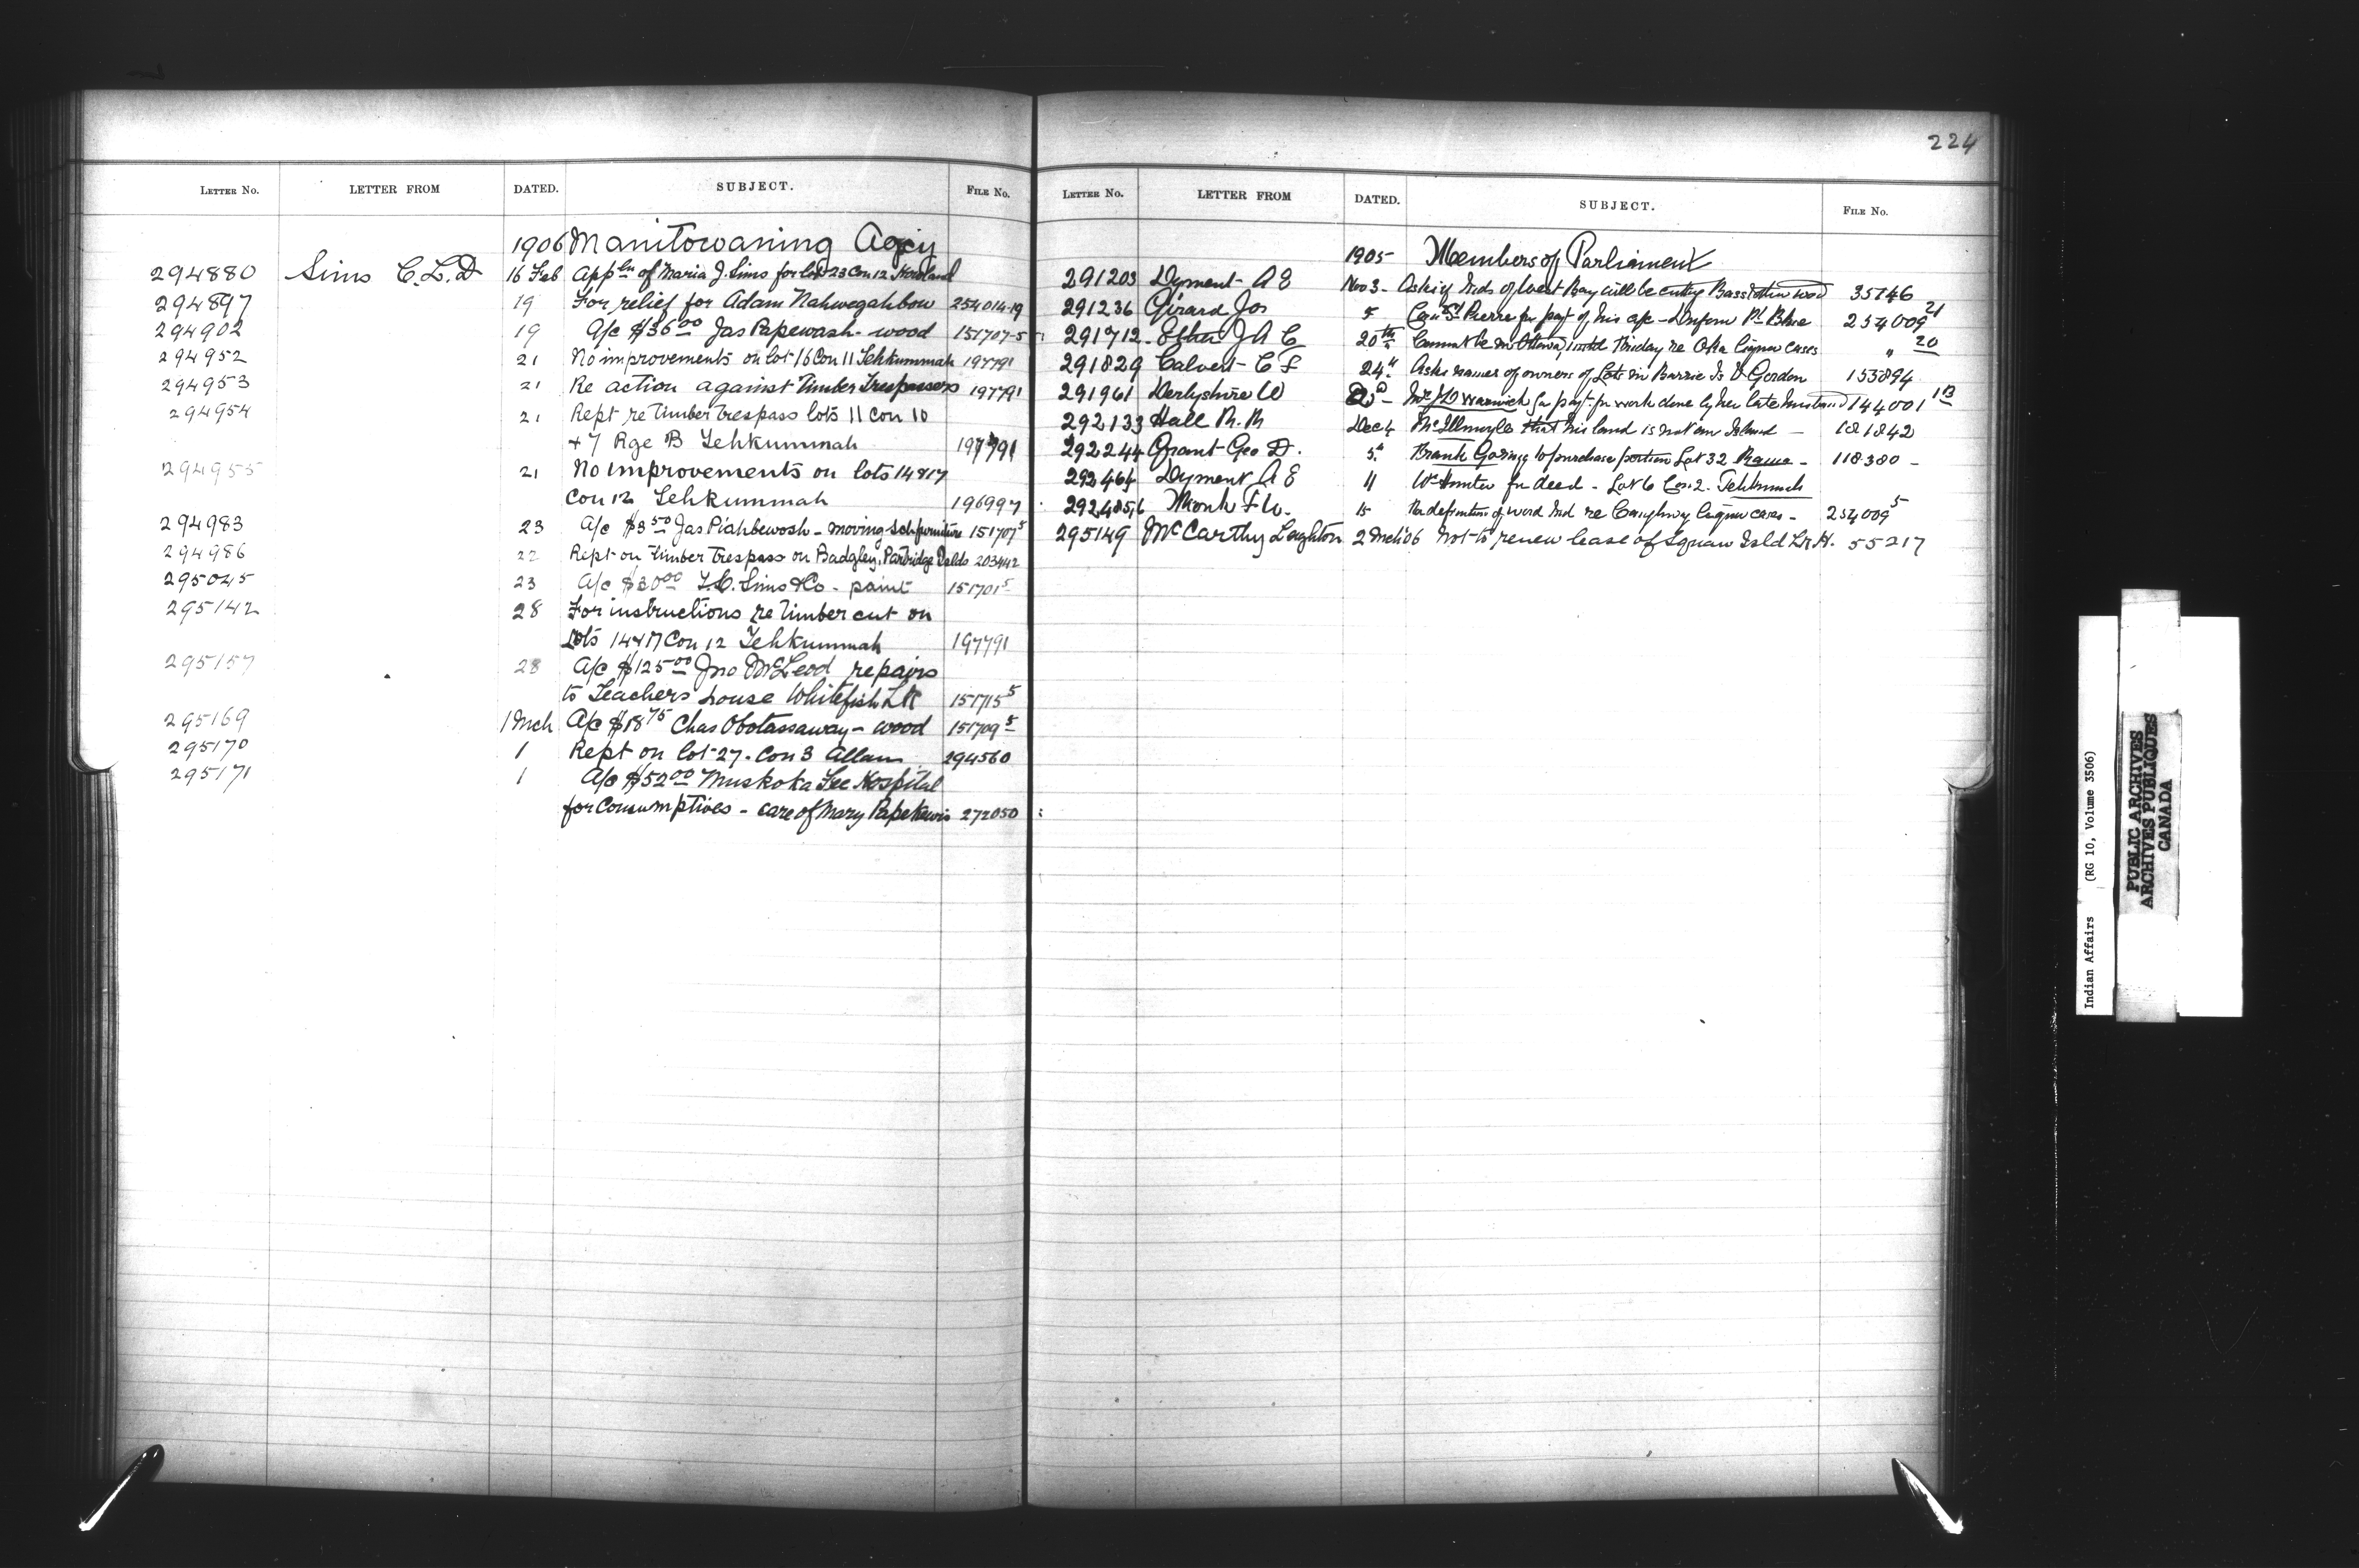 224
LETTER NO. LETTER FROM DATED. SUBJECT. FILE NO.
1906 Manitowaning Agcy
294880 Sims C.L.D 16 Feb Appln of Maria J. Sims for lot 23 Con 12 Howland
294897 19 For relief for Adam Nahwegahbow 254014-19
294902 19 A/c $36.00 Jas Papewash - wood 151707-5
294952 21 No improvements on lot 16 Con 11 Tehkummah 197791
294953 21 Re action against Timber Trespassers 197791
294954 21 Rept re Timber trespass lots 11 Con 10
+ 7 Rge B Tehkummah 197791
294955 21 No improvements on lots 14 & 17
Con 12 Tehkummah 196997
294983 23 A/c $3.50 Jas Piahbewosh - moving Sch furniture 151707 5
294986 22 Rept on Timber Trespass on Badgley, Partridge Islds 203442
295045 23 A/c $20.00 Sims & Co. - paint 151701 5
295142 28 For instructions re Timber cut on
Lots 14 & 17 Con 12 Tehkummah 197791
295157 28 A/c $125.00 Jno McLeod repairs
to Teachers house Whitefish LK 151715 5
295169 1 Mch A/c $18.75 Chas Obotassaway - wood 151709 5
295170 1 Rept on lot 27. Con 3 Allan 294560
295171 1 A/c $52.00 Muskoka Free Hospital
for Consumptives - care of Mary Papekewis 272050
LETTER NO. LETTER FROM DATED. SUBJECT. FILE NO.
1905 Members of Parliament
291203 Dyment A E Nov 3 - Asks if Inds of West Bay will be cutting Bass & other wood 35746
291236 Girard Jos 5 St Pierre for payt of his a/c - Pt Blue 254009 21
291712 A C 20th Cannot be in Ottawa until Friday re Oka liquor cases " 20
291829 Calvert C F 24" Asks names of owners of Lots in Barrie Is D Gordon 153894
291961 Derbyshire D Mrs J D Warwick for payt. for work done by her late husband 144001 13
292133 Hall R. R Dec 4 McIllmoyle that his land is not an Island - 181842
292244 Grant Geo D. 5" Frank Goring to purchase portion Lot 32 Rama - 118380 -
292464 Dyment A E 11 Wm Hunter for deed - Lot 6 Con. 2. Tehkummah
292485,6 Monk F D. 15 For definition of word Ind re Caughnawaga liquor cases - 254009 5
295149 McCarthy Leighton 2 Mch '06 Not to renew lease of Squaw Isld 55217
Indian Affairs (RG 10, Volume 3506)
PUBLIC ARCHIVES
ARCHIVES PUBLIQUES
CANADA